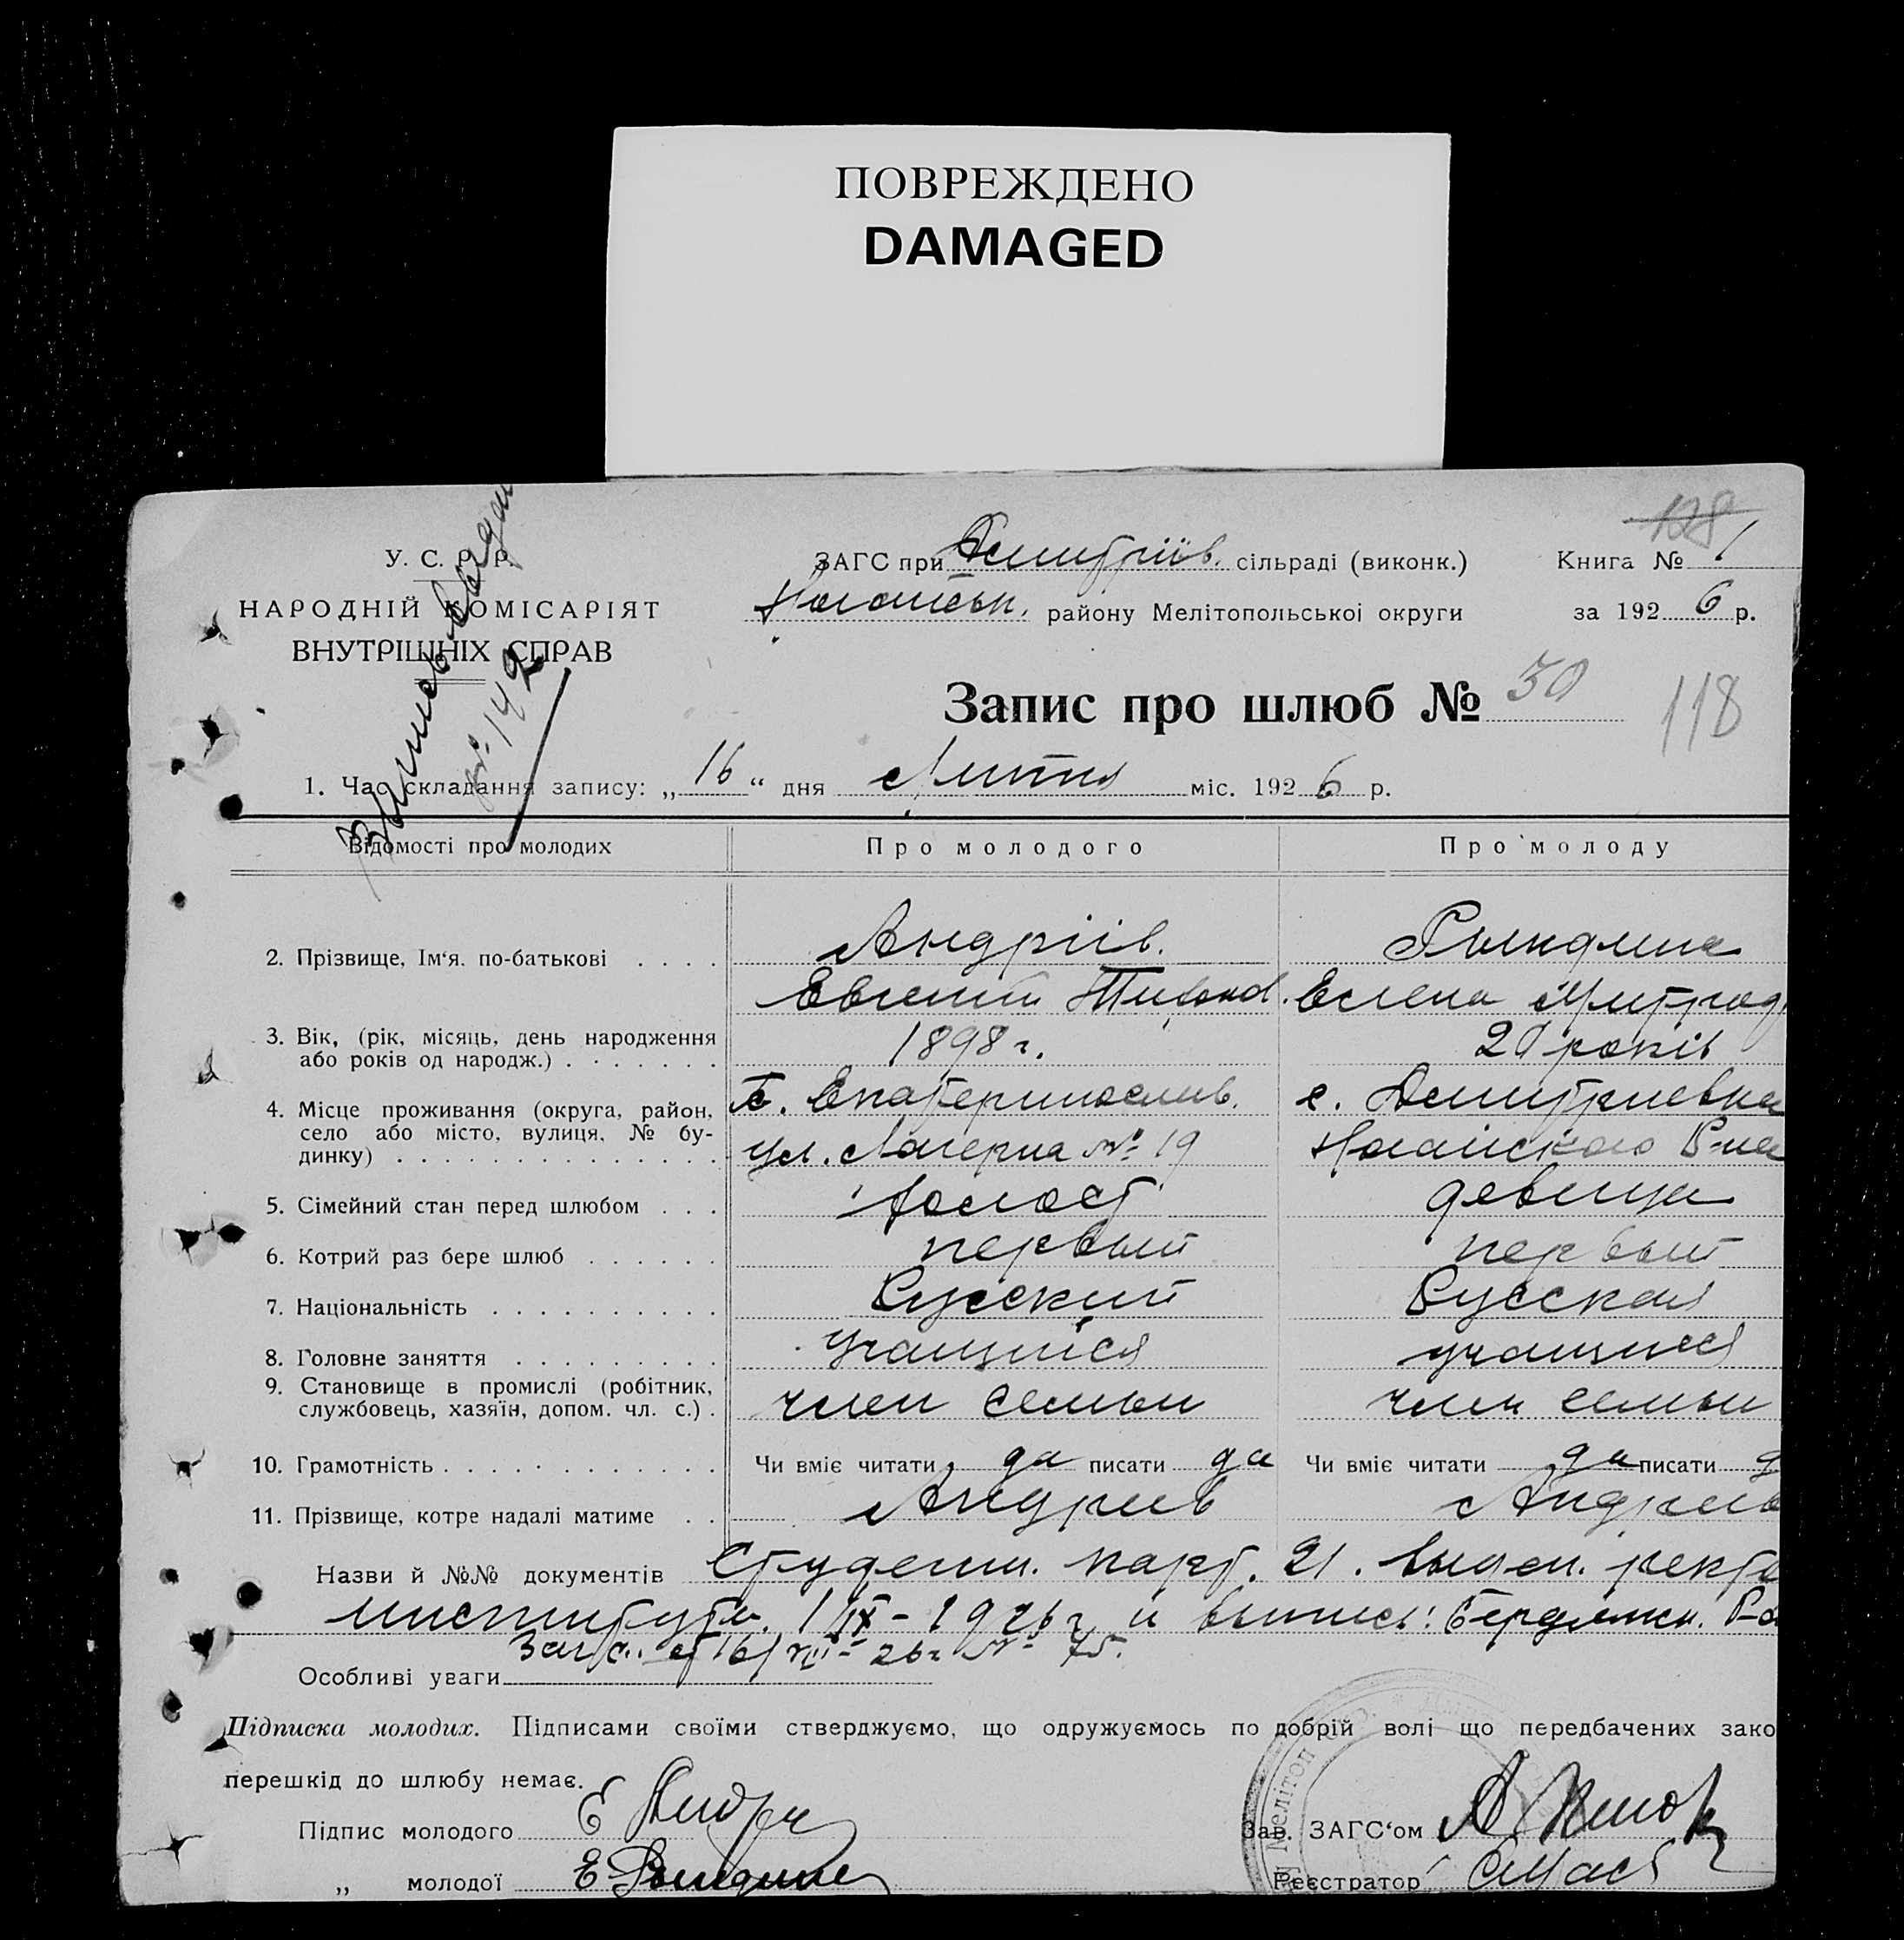 ПОВРЕЖДЕНО
DAMAGED
У. С. Р. Р.
НАРОДНІЙ КОМІСАРІЯТ
ВНУТРІШНІХ СПРАВ
№ 142
ЗАГС при Дмитріїв. сільраді (виконк.)
Ногайськ. району Мелітопольської округи
128
Книга № 1
за 192 6 р.
Запис про шлюб № 30
118
1. Час складання запису: „ 16 “ дня Липня міс. 192 6 р.
Відомості про молодих Про молодого Про молоду
2. Прізвище, Ім‘я. по-батькові . . . . Андріїв. Рындина
Евгений Тихонов. Елена Митрод
3. Вік, (рік, місяць, день народження
або років од народж.) . . . . . . . 1898 г. 20 років
4. Місце проживання (округа, район,
село або місто, вулиця, № бу-
динку) . . . . . . . . . . . . . .
г. Екатеринослав. с. Дмитриевка
ул. Лагерна № 19 Ногайского Р-на
5. Сімейний стан перед шлюбом . . . холост девица
6. Котрий раз бере шлюб . . . . . . первый первый
7. Національність . . . . . . . . . . Русский Русская
8. Головне заняття . . . . . . . . . учащийся учащаяся
9. Становище в промислі (робітник,
службовець, хазяїн, допом. чл. с.) . член семьи член семьи
10. Грамотність . . . . . . . . . . . . Чи вміє читати да писати да Чи вміє читати да писати д
11. Прізвище, котре надалі матиме . . Андриев Андриев
Назви й №№ документів Студенч. карт. 21. выдан. ректо
института. 1/IX - 1926 г и выпись: Бердянск. Р-а
Загса. от 16/ - 26 г № 75.
Особливі уваги
Підписка молодих. Підписами своїми стверджуємо, що одружуємось по добрій волі що передбачених зако
перешкід до шлюбу немає.
Підпис молодого Е Андри
„ молодої Е Рындина
Мелітоп
Зав. ЗАГС‘ом
Реєстратор